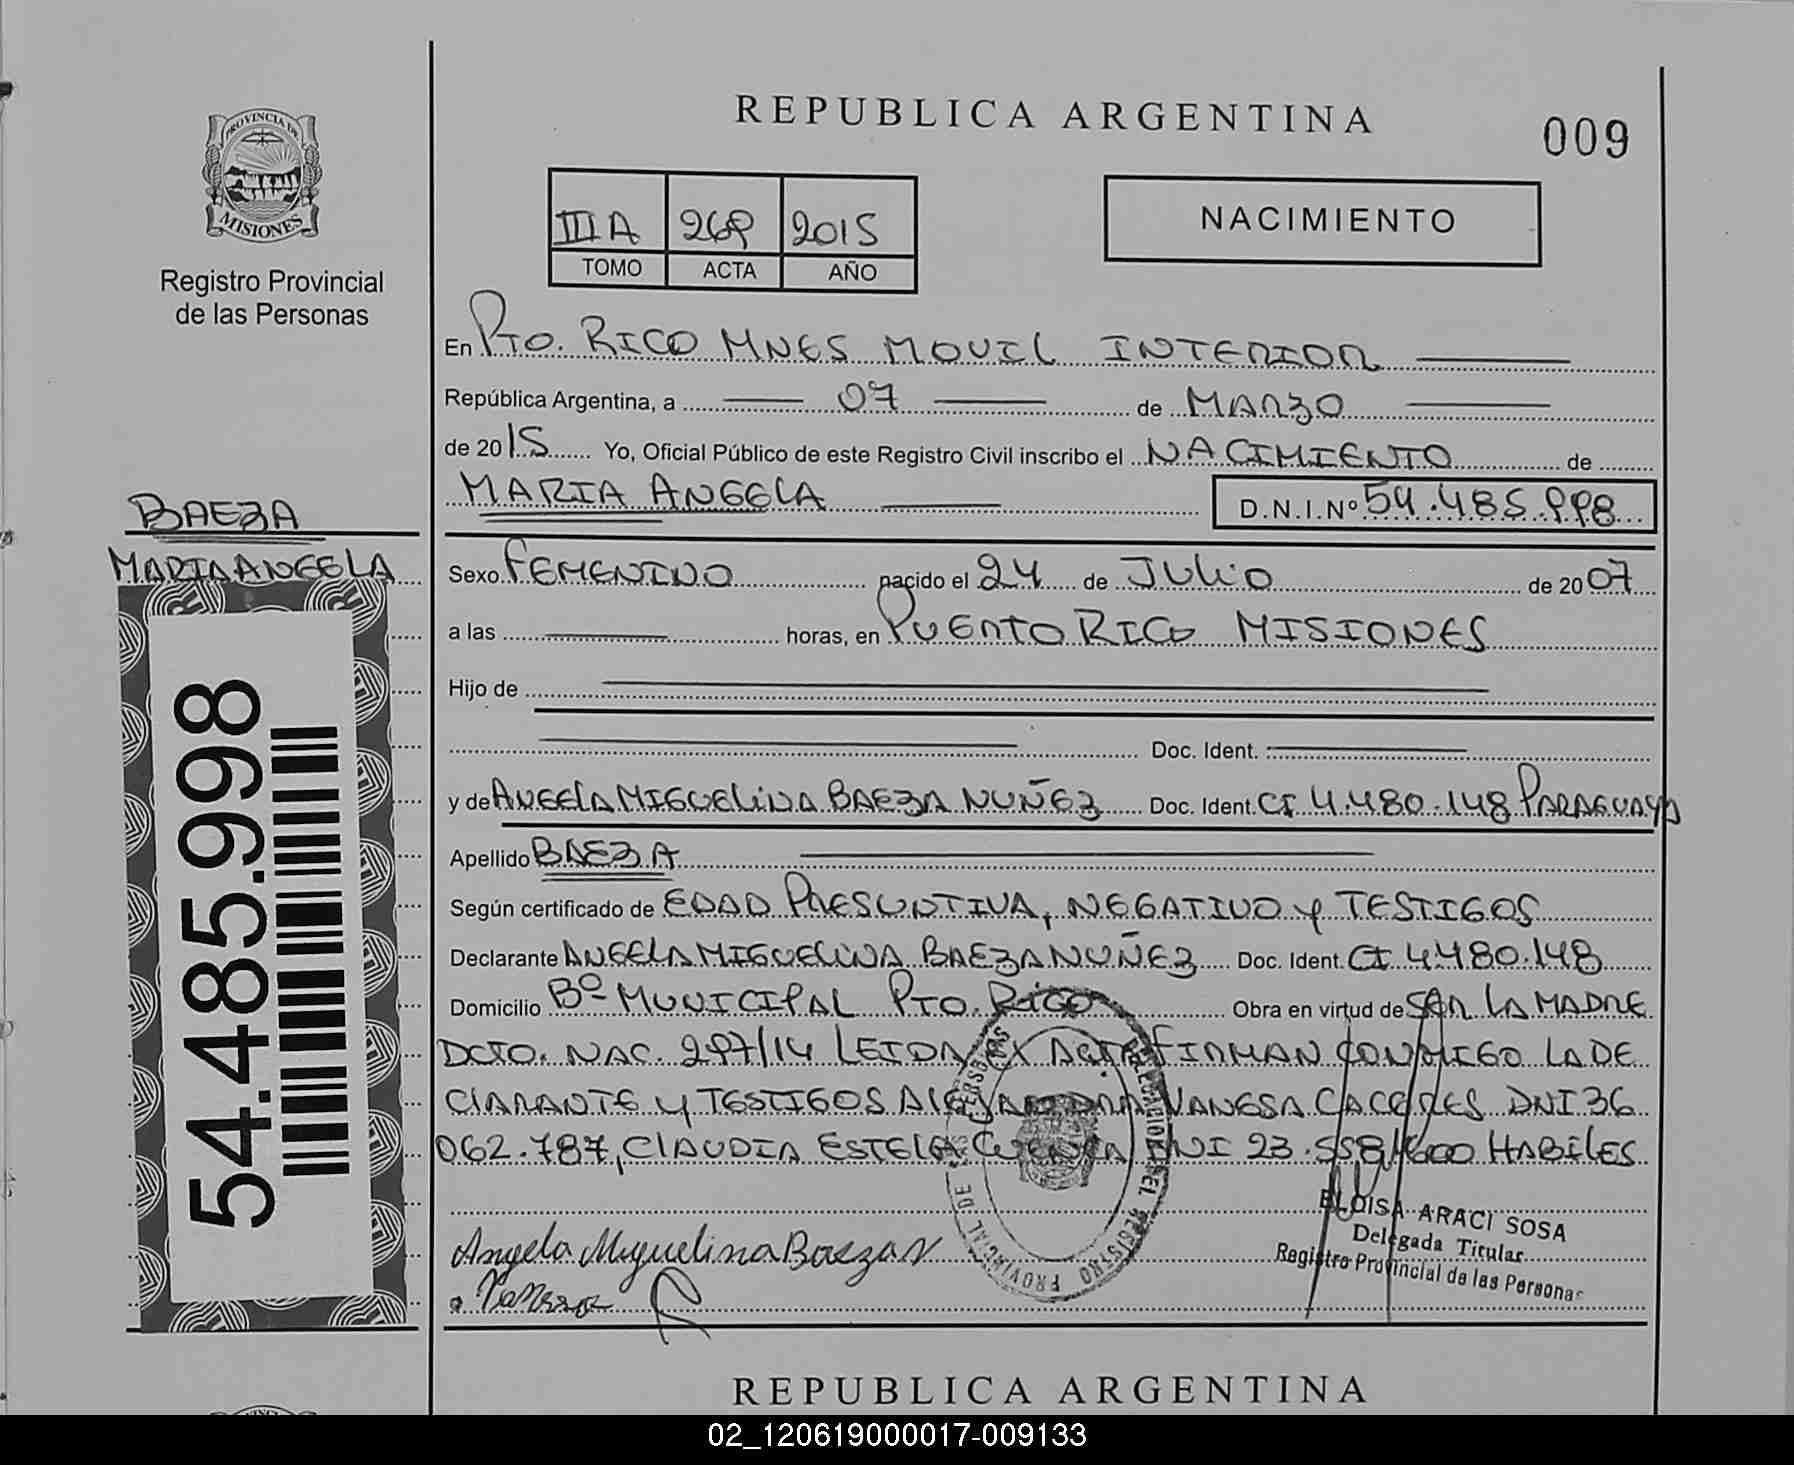 REPUBLICA ARGENTINA
009
PROVINCIA DE
MISIONES
Registro Provincial
de las Personas
III A 269 2015
TOMO ACTA AÑO
NACIMIENTO
En PTO. RICO MNES MOVIL INTERIOR
República Argentina, a 07 de MARZO
de 2015 Yo, Oficial Público de este Registro Civil inscribo el NACIMIENTO de
MARIA ANGELA
D.N.I.Nº 54.485.998
BAEZA
MARIA ANGELA
Sexo FEMENINO nacido el 24 de JULIO de 2007
a las horas, en PUERTO RICO MISIONES
Hijo de
Doc. Ident.
y de ANGELA MIGUELINA BAEZA NUÑEZ Doc. Ident. CI 4.480.148 PARAGUAYA
Apellido BAEZA
Según certificado de EDAD PRESUNTIVA, NEGATIVO Y TESTIGOS
Declarante ANGELA MIGUELINA BAEZA NUÑEZ Doc. Ident. CI 4.480.148
Domicilio Bº MUNICIPAL PTO. RICO Obra en virtud de SER LA MADRE
DCTO. NAC. 297/14 LEIDA EX ACTA FIRMAN CONMIGO LA DE
CLARANTE Y TESTIGOS ALEJANDRA VANESA CACERES DNI 36
062.787, CLAUDIA ESTELA DNI 23.558.600 HABILES
54.485.998
ELOISA ARACI SOSA
Delegada Titular
Registro Provincial de las Personas
Angela Miguelina Baeza N
REPUBLICA ARGENTINA
02_120619000017-009133